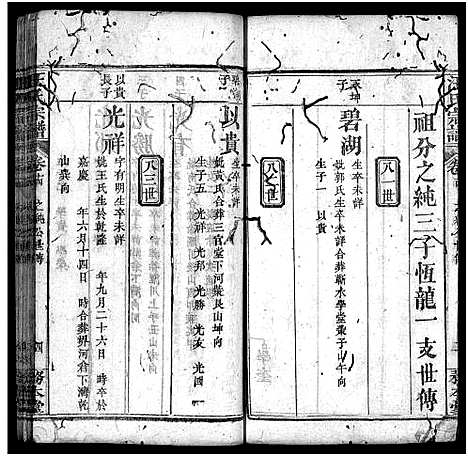 祖分之純三子恆龍一支世傳
八一世
天坤子
碧湖
生卒未詳
娶郭氏生卒未詳合葬蘄水學堂棗子山午向
生子一 以貴
八二世
以貴
生卒未詳
娶黃氏合葬三官堂下河柴長山坤向
生子五 光祥 光邦 光勝 光友 光國
八三世
以貴長子
光祥
字有明生卒未詳
娶王氏生於乾隆 年九月二十六日 時卒於
嘉慶 年六月十四日 時合葬界河倉下灣乾
山巽向
汪氏宗譜
卷
四